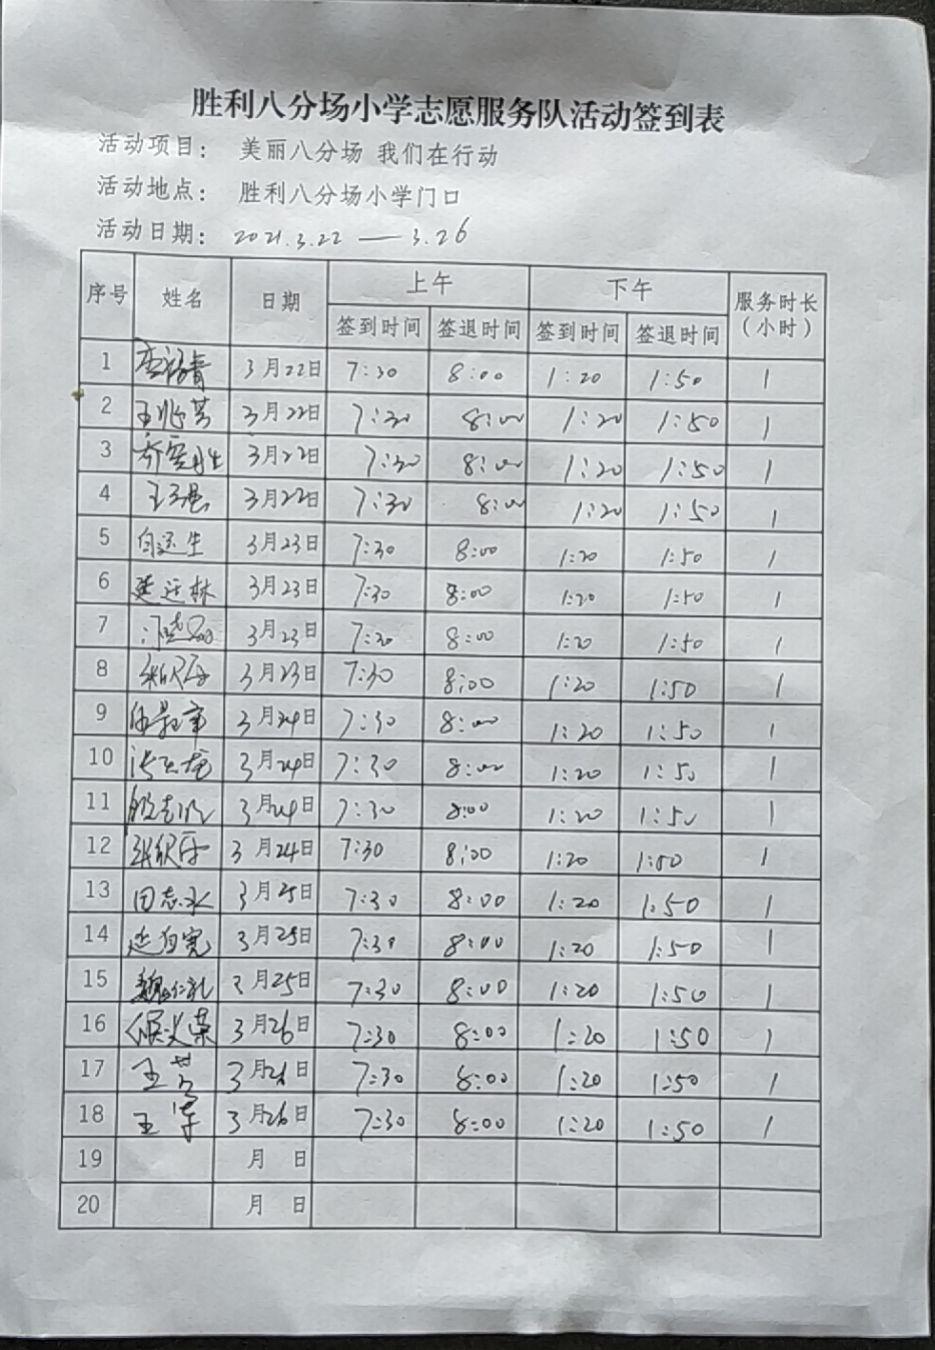 胜利八分场小学志愿服务队活动签到表
活动项目： 美丽八分场 我们在行动
活动地点： 胜利八分场小学门口
活动日期： 2021.3.22 — 3.26
序号 姓名 日期 上午 下午 服务时长（小时）
签到时间 签退时间 签到时间 签退时间
1 3月22日 7:30 8:00 1:20 1:50 1
2 王兆芳 3月22日 7:30 8:00 1:20 1:50 1
3 乔雪生 3月22日 7:30 8:00 1:20 1:50 1
4 3月22日 7:30 8:00 1:20 1:50 1
5 白运生 3月23日 7:30 8:00 1:20 1:50 1
6 3月23日 7:30 8:00 1:20 1:50 1
7 3月23日 7:30 8:00 1:20 1:50 1
8 3月23日 7:30 8:00 1:20 1:50 1
9 3月24日 7:30 8:00 1:20 1:50 1
10 3月24日 7:30 8:00 1:20 1:50 1
11 3月24日 7:30 8:00 1:20 1:50 1
12 3月24日 7:30 8:00 1:20 1:50 1
13 田志永 3月25日 7:30 8:00 1:20 1:50 1
14 3月25日 7:30 8:00 1:20 1:50 1
15 魏仁礼 3月25日 7:30 8:00 1:20 1:50 1
16 3月26日 7:30 8:00 1:20 1:50 1
17 王芳 3月26日 7:30 8:00 1:20 1:50 1
18 王 3月26日 7:30 8:00 1:20 1:50 1
19 月 日
20 月 日